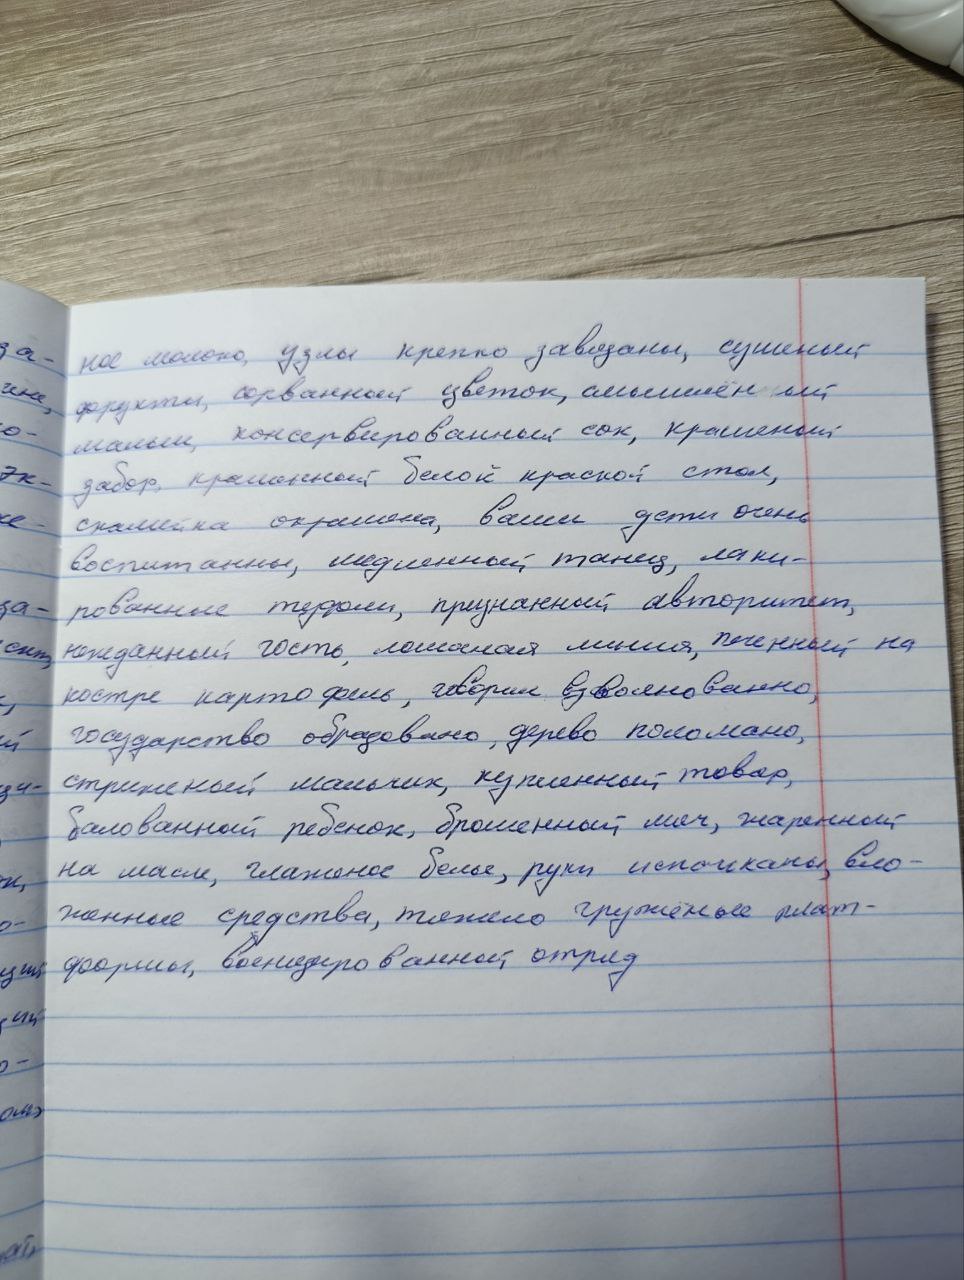 ное молоко, узлы крепко завязаны, сушеный
фрукты, сорванный цветок, смышлён ый
малыш, консервированный сок, крашеный
забор, крашенный белой краской стол,
скамейка окрашена, ваши дети очень
воспитанны, медленный танец, лаки-
рованные туфли, признанный авторитет,
нежданный гость, ломаная линия, печенный на
костре картофель, говорил взволнованно,
государство образовано, дерево поломано,
стриженый мальчик, купленный товар,
балованный ребенок, брошенный мяч, жаренный
на масле, глаженое белье, руки испачканы, вло-
женные средства, тяжело гружёные плат-
формы, военизированный отряд
за-
ю-
эк-
же-
за-
й
зи-
о-
щий
щий
о-